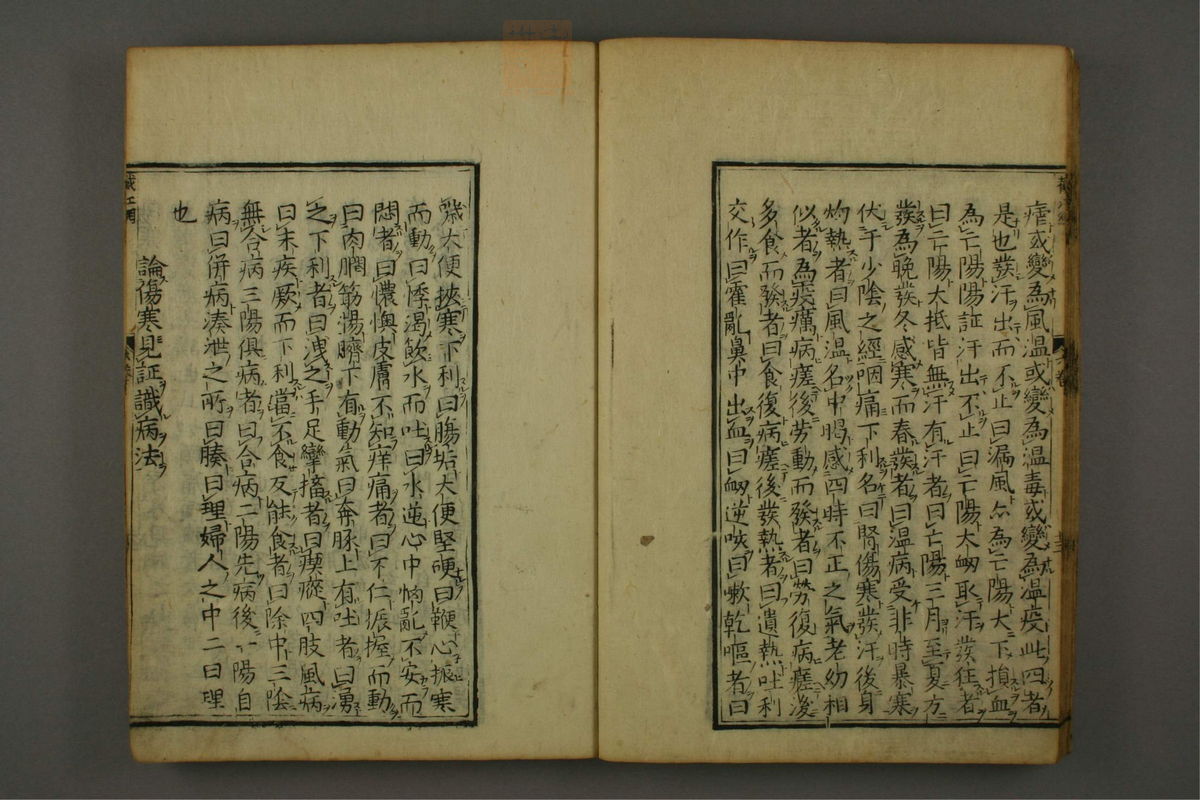 瘧或變為風温或變為温毒或變為温疫此四者
是也發汗出而不止曰漏風亦為亡陽大下損血
為亡陽陽証汗出不止曰亡陽大衂取汗發狂者
曰亡陽大抵皆無汗有汗者曰亡陽三月至夏方
發為晚發冬感寒而春發者曰温病受非時暴寒
伏于少陰之經咽痛下利名曰腎傷寒發汗後身
灼熱者曰風温名中暍感四時不正之氣老幼相
似者為疫癘病瘥後劳動而發者曰勞復病瘥後
多食而發者曰食復病瘥後發熱者曰遺熱吐利
交作曰霍亂鼻中出血曰衂逆咳曰嗽乾嘔者曰
大便挾寒下利曰腸垢大便堅哽曰鞕心振寒
而動曰悸渴飲水而吐曰水逆心中悩乱不安而
悶者曰懊憹皮膚不知痒痛者曰不仁振握而動
曰肉瞤筋惕臍下有動氣曰奔豚上有吐者曰湧
之下利者曰洩之手足攣搐者曰瘈瘲四肢風病
曰末疾厥而下利當不食反能食者曰除中三陰
無合病三陽俱病者曰合病二陽先病後一陽自
病曰併病湊泄之所曰腠曰理婦人之中二曰理
也
論傷寒見証識病法